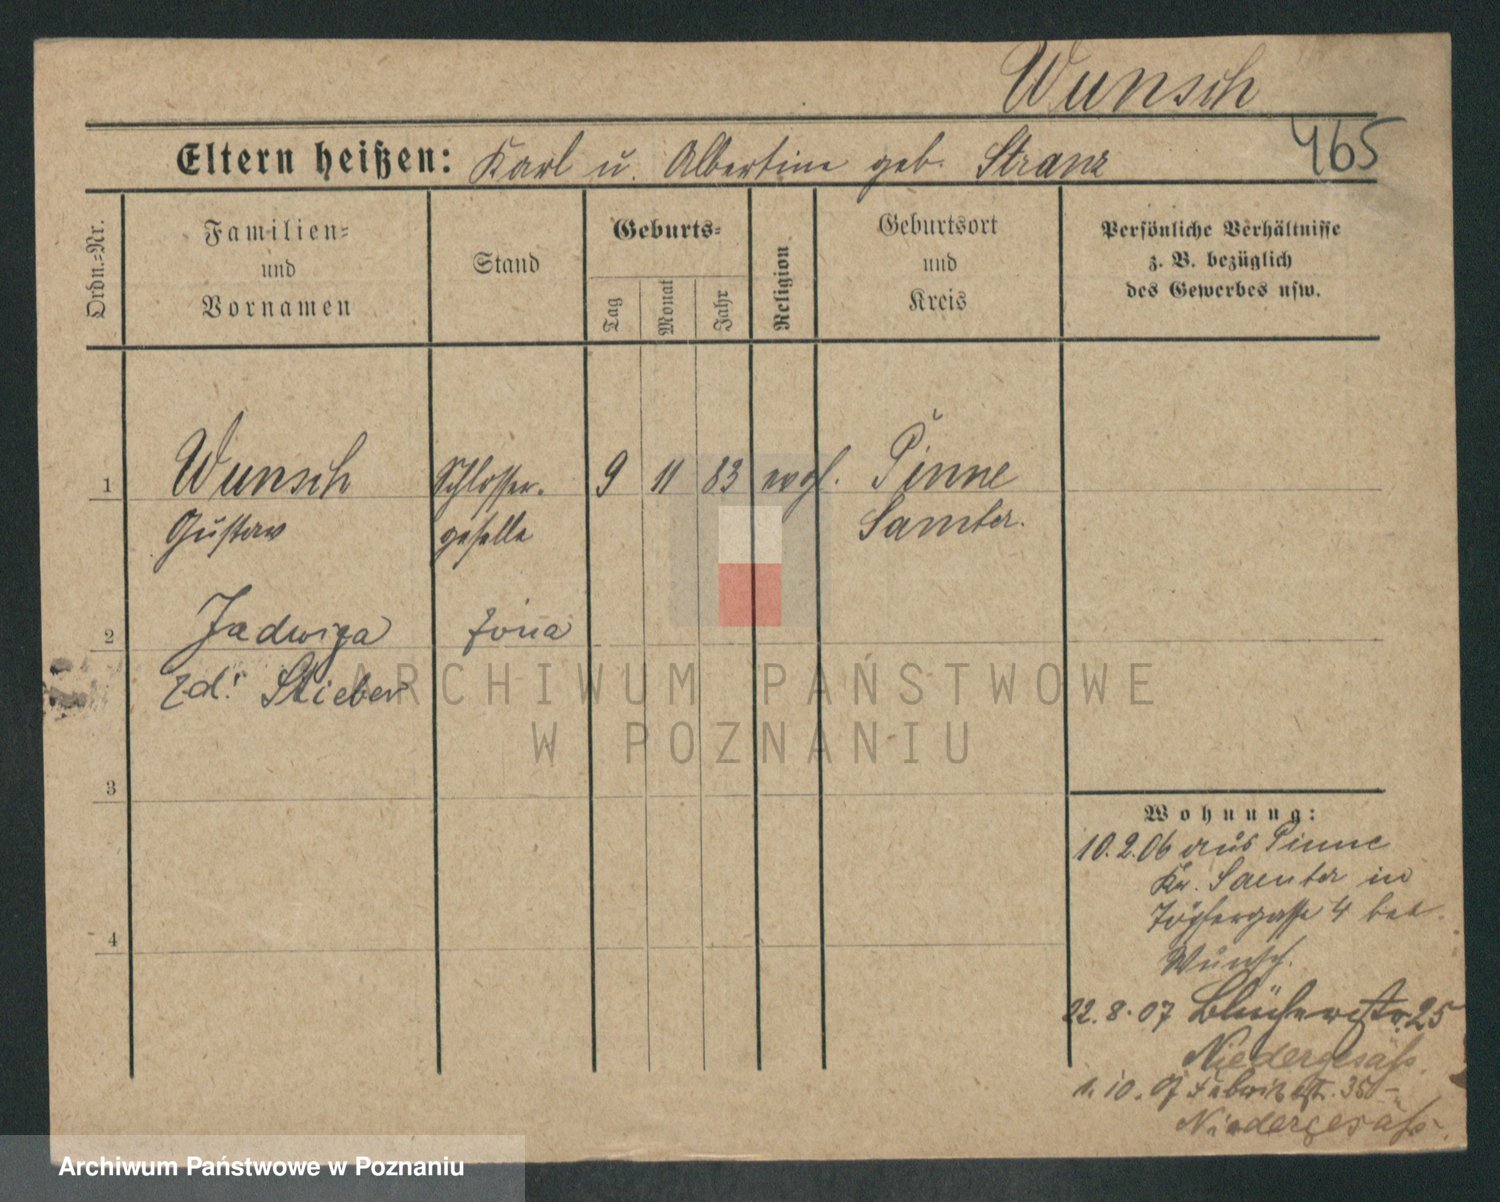 Wunsch
465
Eltern heißen: Karl u. Albertine geb. Stranz
Ordn.-Nr.
Familien-
und
Vornamen
Stand
Geburts-
Tag
Monat
Jahr
Religion
Geburtsort
und
Kreis
Persönliche Verhältnisse
z. B. bezüglich
des Gewerbes usw.
1 Wunsch Schlosser- 9 11 83 evgl. Pinne
Gustav geselle Samter.
2 Jadwiga żona
zd. Stieber
3
4
Wohnung:
10.2.06 aus Pinne
Kr. Samter in
Töpfergasse 4 bei
Wunsch.
22.8.07 Blücherstr. 25
Niedergesäss.
1.10.07 Fabrikstr. 35
Niedergesäss.
ARCHIWUM PAŃSTWOWE
W POZNANIU
Archiwum Państwowe w Poznaniu